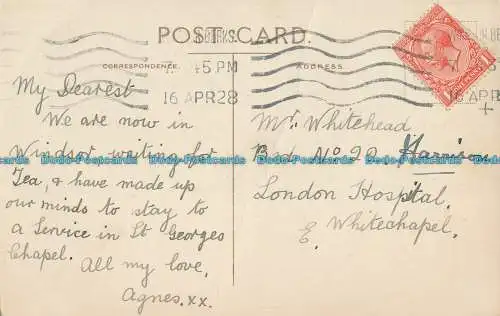 POST CARD.
CORRESPONDENCE.
ADDRESS.
45 PM
16 APR 28
16 APR
My Dearest
We are now in
Windsor, waiting for
Tea, & have made up
our minds to stay to
a Service in St Georges
Chapel.
All my love,
Agnes. xx.
Mr. Whitehead
Bed No 20 Harrison
London Hospital,
Whitechapel,
E.
Dodo-Postcards Dodo-Postcards Dodo-Postcards Dodo-Postcards Dodo-Postcards